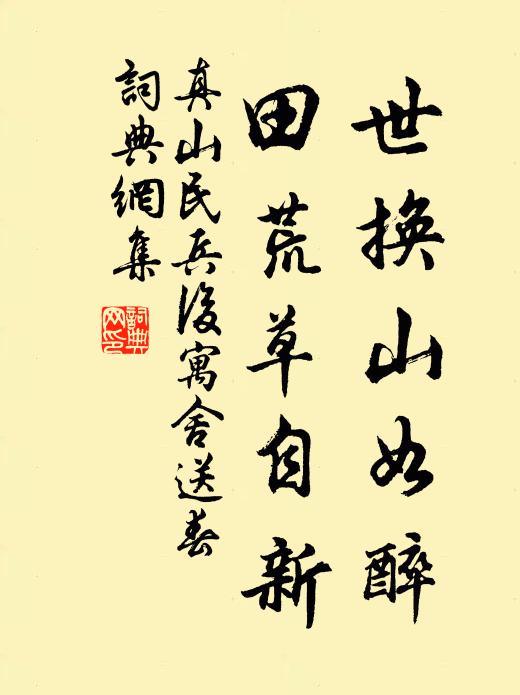 世換山如醉
田荒草自新
真山民兵後寓舍送春
詞典網集
詞典網印